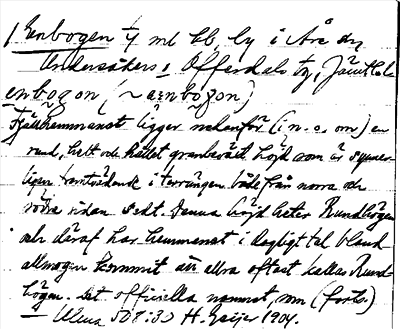 1 Enbogen ½ ml bb, by i Åre sn
Undersåkers o Offerdals tg, Jämtl. l.
enbōgon (~ aenbōgon)
Fjällhemmanet ligger nedanför (i n. o. om) en
rund, helt och hållet granbeväxt höjd som är synner-
ligen framträdande i terrängen både från norra och
södra sidan sedt. Denna höjd heter Rundhögen
och däraf har hemmanet i dagligt tal bland
allmogen kommit att allra oftast kallas Rund-
högen. Det officiella namnet, om (forts.)
— Ulma 508:30 H. Geijer 1904.